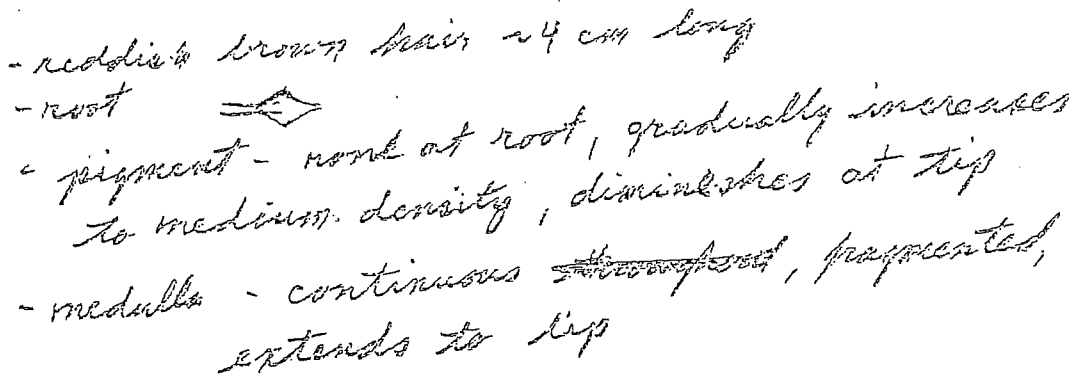 - reddish brown hair ~4 cm long
- root
- pigment - none at root, gradually increases
to medium density, diminishes at tip
- medulla - continuous throughout, fragmented,
extends to tip